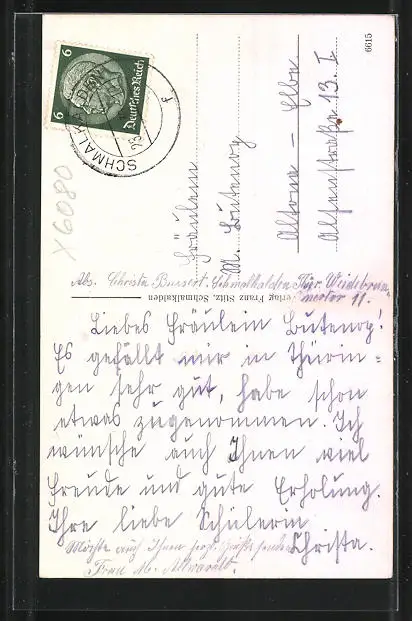 6615
6
6
Deutsches Reich
SCHMALKALDEN
23
f
X6080
Fräulein
M. Butenop
Altona – Elbe
Alsenstraße 13. I
Abs. Christa Bussert. Schmalkalden Thür. Weidebrunner
Verlag Franz Stütz, Schmalkalden
11.
Liebes Fräulein Butenop!
Es gefällt mir in Thürin-
gen sehr gut, habe schon
etwas zugenommen. Ich
wünsche auch Ihnen viel
Freude und gute Erholung.
Ihre liebe Schülerin
Christa.
Möchte auch Ihnen herzl. Grüße senden
Frau M.